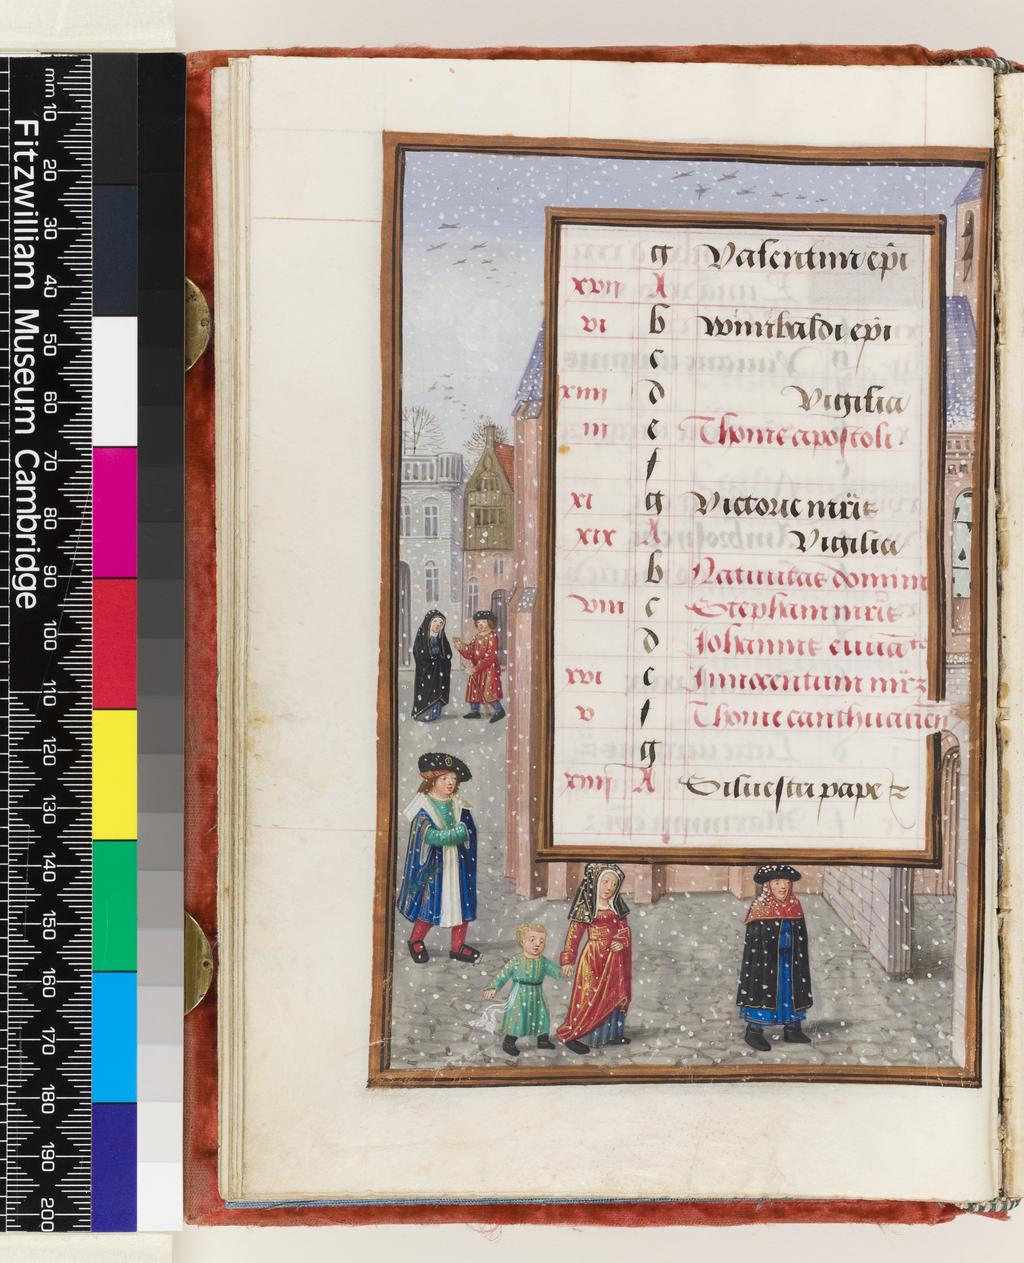 mm 10 20 30 40 50 60 70 80 90 100 110 120 130 140 150 160 170 180 190 200
Fitzwilliam Museum Cambridge
g Valentini epi
xvii A
vi b Winibaldi epi
c
xiiii d Vigilia
iii e Thome apostoli
f
xi g Victorie mris
xix A Vigilia
b Natiuitas domini
viii c Stephani mris
d Johannis
xvi e Innocentum mrz
v f Thome canthuarien
g
xiiii A Siluestri pape